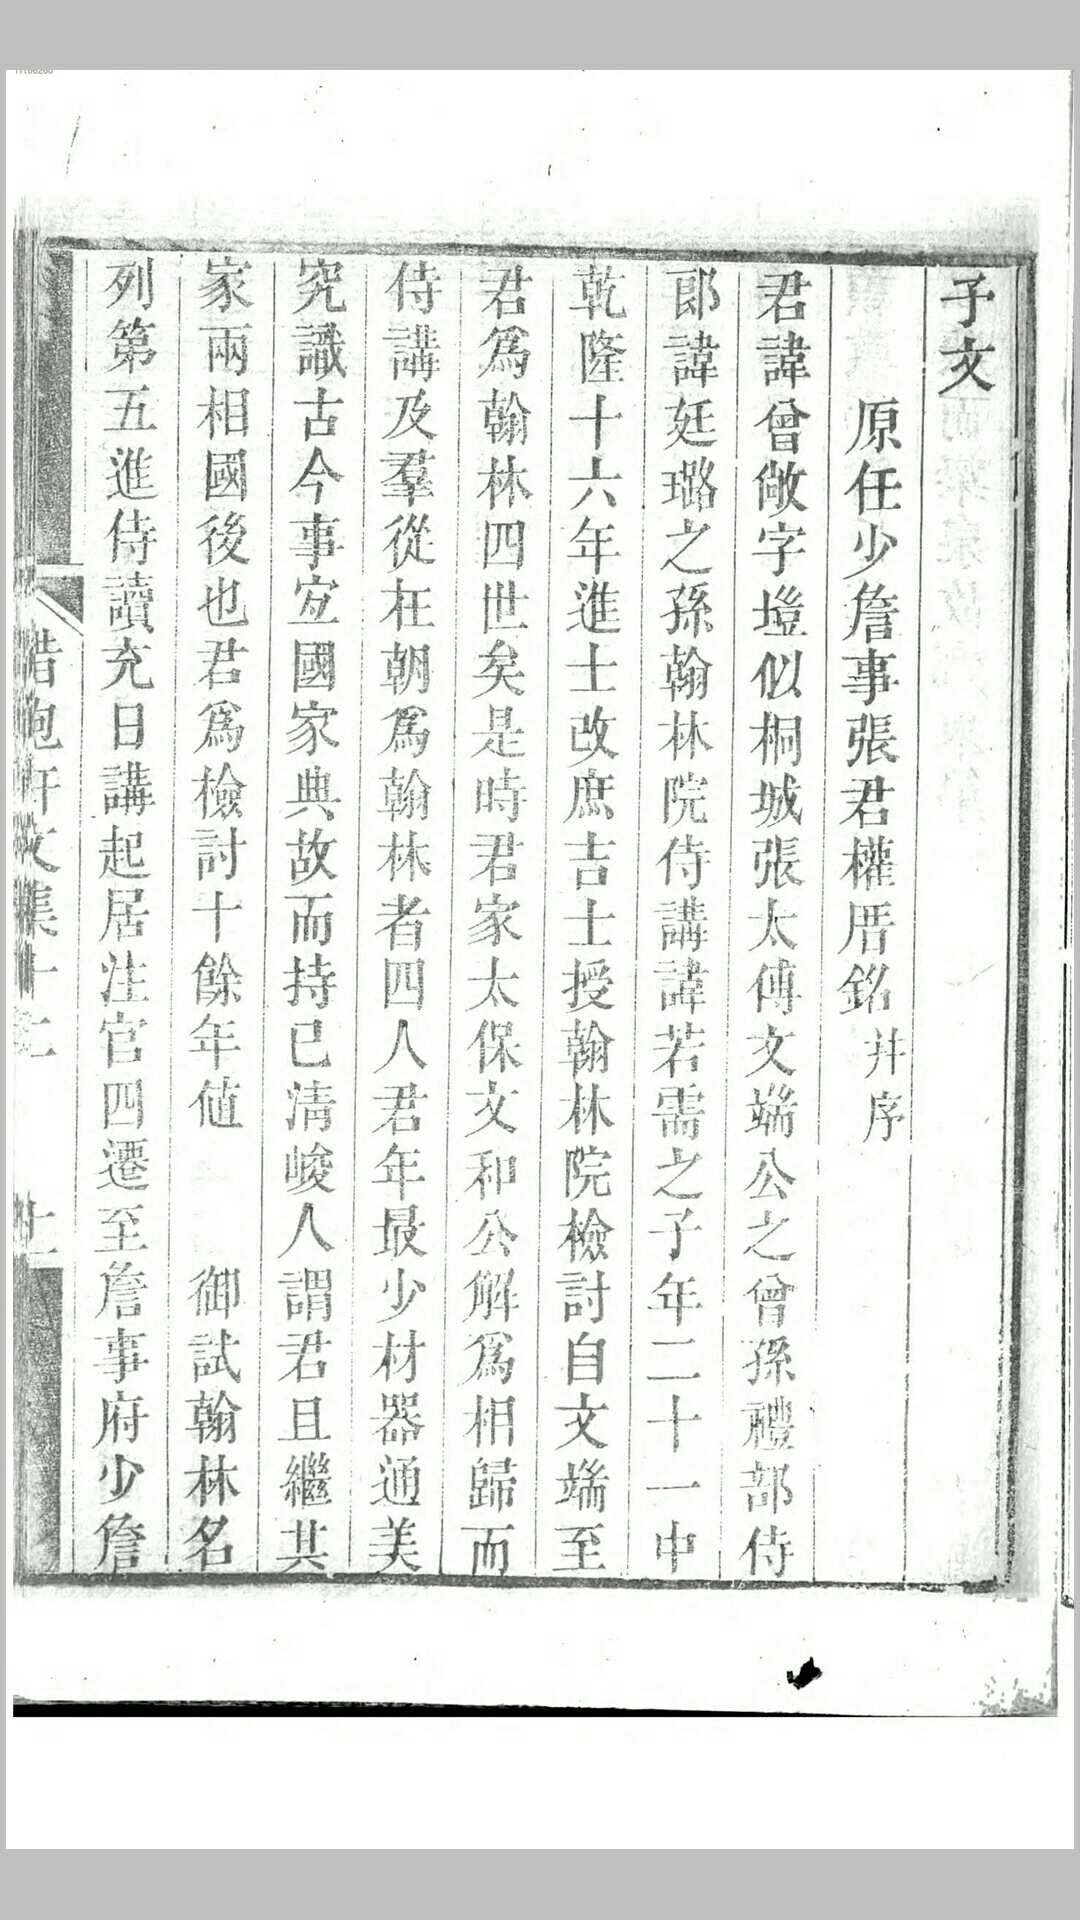 子文
原任少詹事張君權厝銘并序
君諱曾敞字塏似桐城張太傅文端公之曾孫禮部侍
郎諱廷璐之孫翰林院侍講諱若需之子年二十一中
乾隆十六年進士改庶吉士授翰林院檢討自文端至
君爲翰林四世矣是時君家太保文和公解爲相歸而
侍講及羣從在朝爲翰林者四人君年最少材器通美
究識古今事宜國家典故而持已清峻人謂君且繼其
家兩相國後也君爲檢討十餘年値 御試翰林名
列第五進侍讀充日講起居注官四遷至詹事府少詹
惜抱軒文集十二